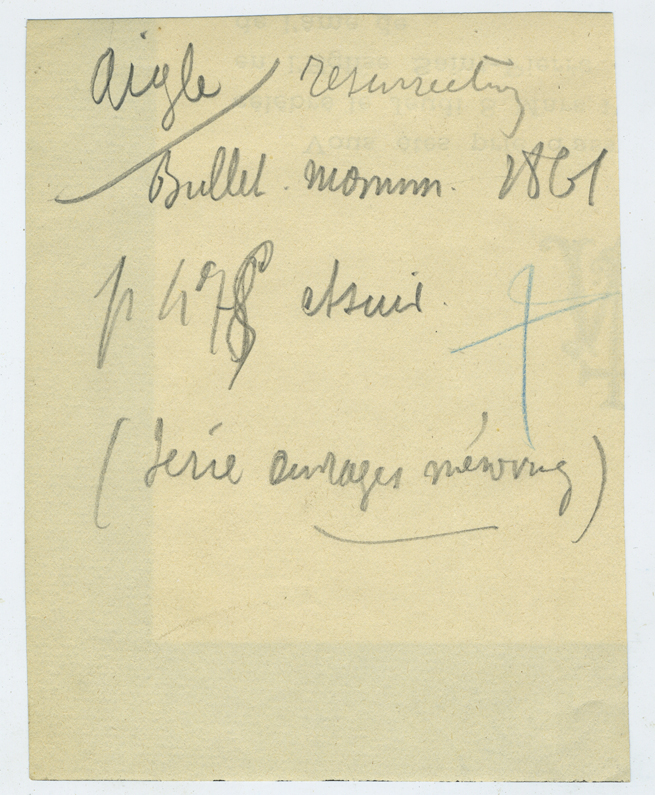 Aigle / resurrection
Bullet. monum. 1861
p 478 et suiv.
(Série ouvrages méroving)